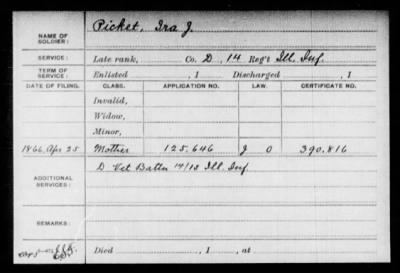 NAME OF SOLDIER: Picket, Ira J.
SERVICE: Late rank, Co. D, 14 Reg't Ill. Inf.
TERM OF SERVICE: Enlisted , 1 Discharged , 1
DATE OF FILING. CLASS. APPLICATION NO. LAW. CERTIFICATE NO.
Invalid,
Widow,
Minor,
1866, Apr 25 Mother 125,646 J O 390,816
ADDITIONAL SERVICES: D Vet Battn 14/15 Ill. Inf
REMARKS:
Died , 1 , at